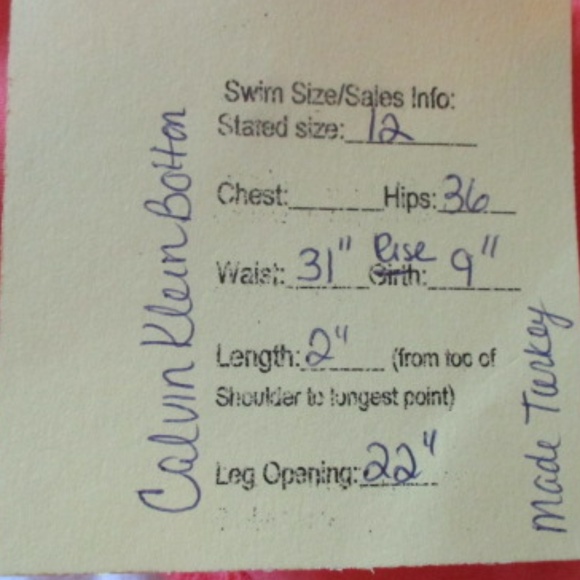 Swim Size/Sales Info:
Stated size: 12
Chest: Hips: 36
Waist: 31" Rise Girth: 9"
Length: 2" (from top of
Shoulder to longest point)
Leg Opening: 22"
Calvin Klein Bottom
Made Turkey